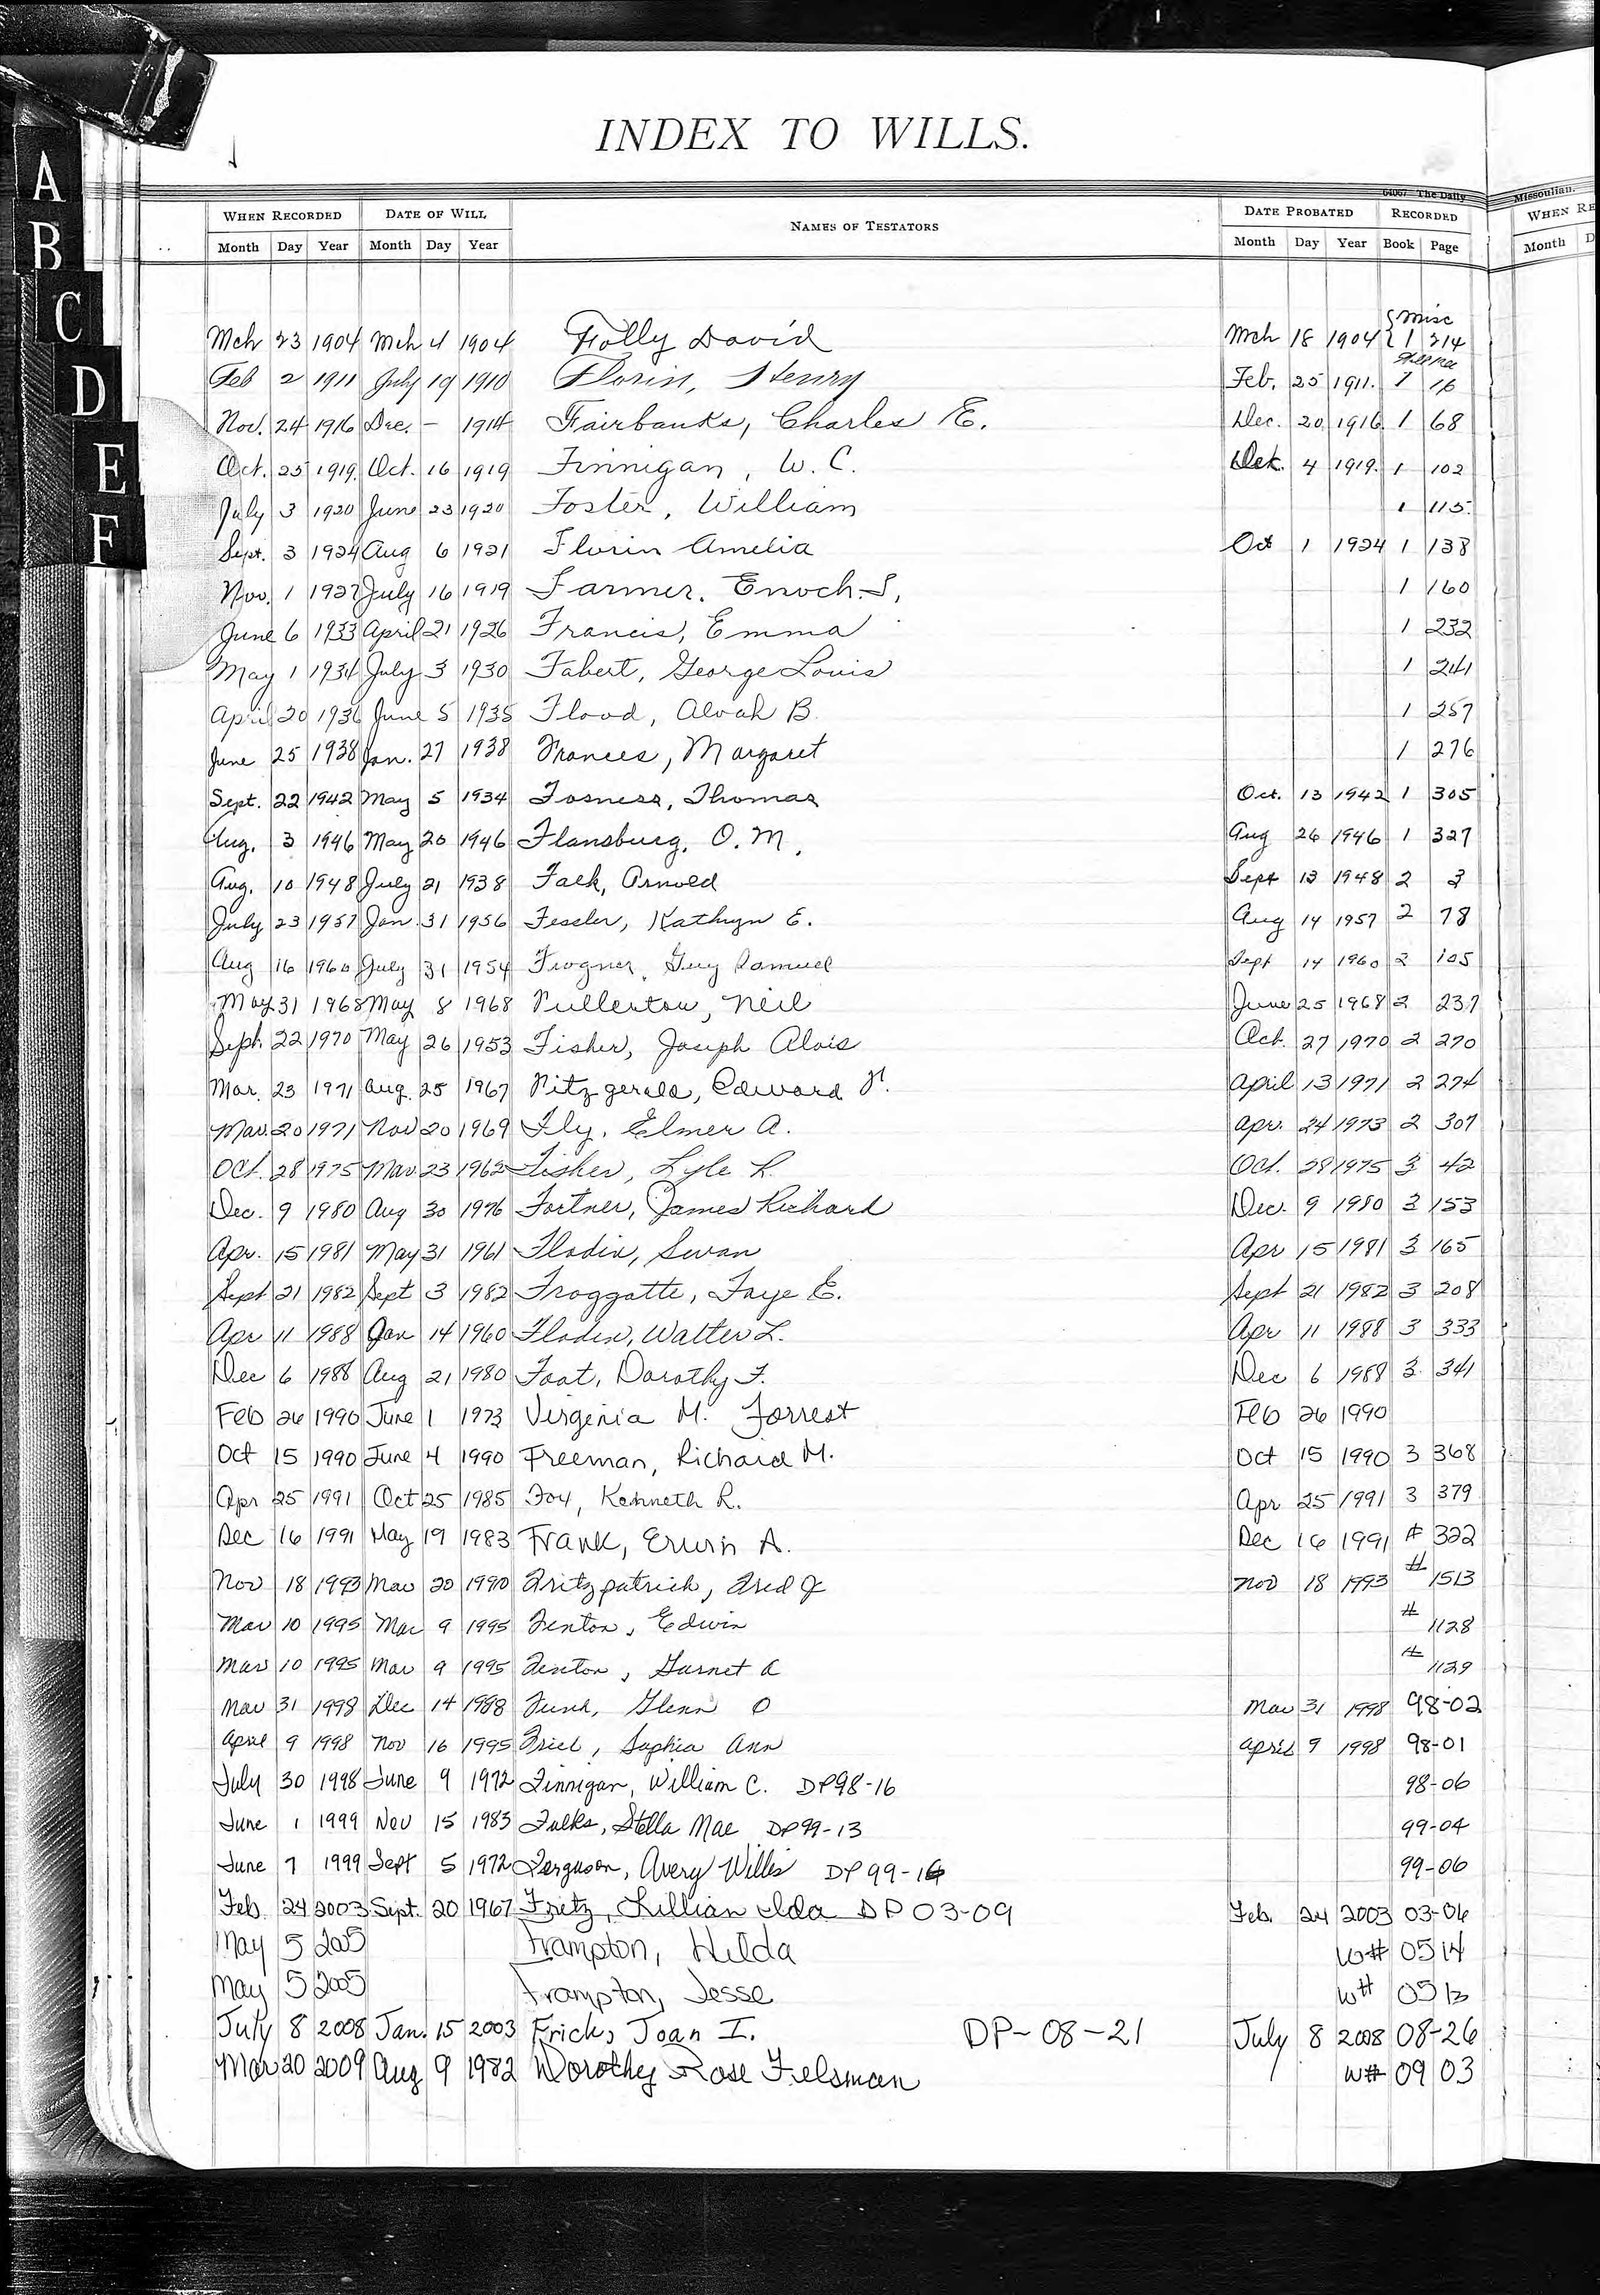 A
B
C
D
E
F
INDEX TO WILLS.
64067 The Daily Missoulian.
WHEN RECORDED DATE OF WILL NAMES OF TESTATORS DATE PROBATED RECORDED
Month Day Year Month Day Year Month Day Year Book Page
WHEN RE
Month D
Misc
Mch 23 1904 Mch 4 1904 Folly David Mch 18 1904 1 214
Feb 2 1911 July 19 1910 Florin, Henry Feb. 25 1911. 1 16
Nov. 24 1916 Dec. - 1914 Fairbanks, Charles E. Dec. 20 1916 1 68
Oct. 25 1919. Oct. 16 1919 Finnigan, W. C. 4 1919. 1 102
July 3 1920 June 23 1920 Foster, William 1 115
Sept. 3 1924 Aug 6 1921 Florin Amelia Oct 1 1924 1 138
Nov. 1 1927 July 16 1919 Farmer. Enoch. S. 1 160
June 6 1933 April 21 1926 Francis, Emma 1 232
May 1 1934 July 3 1930 Fabert, George Louis 1 241
April 20 1936 June 5 1935 Flood, Alvah B. 1 257
June 25 1938 Jan. 27 1938 Frances, Margaret 1 276
Sept. 22 1942 May 5 1934 Fosness, Thomas Oct. 13 1942 1 305
Aug. 3 1946 May 20 1946 Flansburg, O. M. Aug 26 1946 1 327
Aug. 10 1948 July 21 1938 Falk, Arnold Sept 13 1948 2 3
July 23 1957 Jan. 31 1956 Fessler, Kathryn E. Aug 14 1957 2 78
Aug 16 1960 July 31 1954 Frogner, Guy Samuel Sept 14 1960 2 105
May 31 1968 May 8 1968 Fullerton, Neil June 25 1968 2 237
Sept. 22 1970 May 26 1953 Fisher, Joseph Alois Oct. 27 1970 2 270
Mar. 23 1971 Aug. 25 1967 Fitzgerald, Edward F. April 13 1971 2 274
Mar. 20 1971 Nov 20 1969 Fly, Elmer A. Apr. 24 1973 2 307
Oct. 28 1975 Mar. 23 1962 Fisher, Lyle R. Oct. 28 1975 3 42
Dec. 9 1980 Aug 30 1976 Fortner, James Richard Dec. 9 1980 3 153
Apr. 15 1981 May 31 1961 Flodin, Swan Apr 15 1981 3 165
Sept 21 1982 Sept 3 1982 Froggatte, Faye E. Sept 21 1982 3 208
Apr 11 1988 Jan 14 1960 Flodin, Walter L. Apr 11 1988 3 333
Dec 6 1988 Aug 21 1980 Foot, Dorothy F. Dec 6 1988 3 341
Feb 26 1990 June 1 1973 Virginia M. Forrest Feb 26 1990
Oct 15 1990 June 4 1990 Freeman, Richard M. Oct 15 1990 3 368
Apr 25 1991 Oct 25 1985 Fox, Kenneth R. Apr 25 1991 3 379
Dec 16 1991 May 19 1983 Frank, Erwin A. Dec 16 1991 # 322
Nov 18 1993 Mar 20 1990 Fritzpatrick, Fred J Nov 18 1993 # 1513
Mar 10 1995 Mar 9 1995 Fenton, Edwin # 1128
Mar 10 1995 Mar 9 1995 Fenton, Garnet A # 1129
Mar 31 1998 Dec 14 1988 Funk, Glenn O Mar 31 1998 98-02
April 9 1998 Nov 16 1995 Friel, Sophia Ann April 9 1998 98-01
July 30 1998 June 9 1972 Finnigan, William C. DP98-16 98-06
June 1 1999 Nov 15 1983 Fulks, Stella Mae DP99-13 99-04
June 7 1999 Sept 5 1972 Ferguson, Avery Willis DP 99-16 99-06
Feb. 24 2003 Sept. 20 1967 Fritz, Lillian Ida DP 03-09 Feb. 24 2003 03-06
May 5 2005 Frampton, Hilda W# 05 14
May 5 2005 Frampton, Jesse W# 05 13
July 8 2008 Jan. 15 2003 Frick, Joan I. DP-08-21 July 8 2008 08-26
Mar 20 2009 Aug 9 1982 Dorothy Rose Felsman W# 09 03